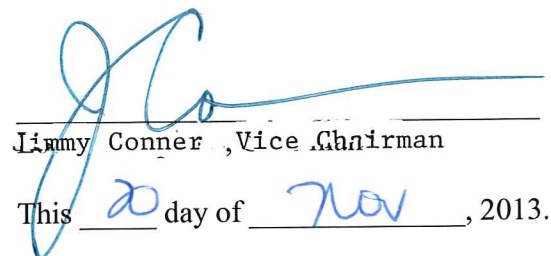 J Co
Jimmy Conner ,Vice Chairman
This 20 day of Nov , 2013.